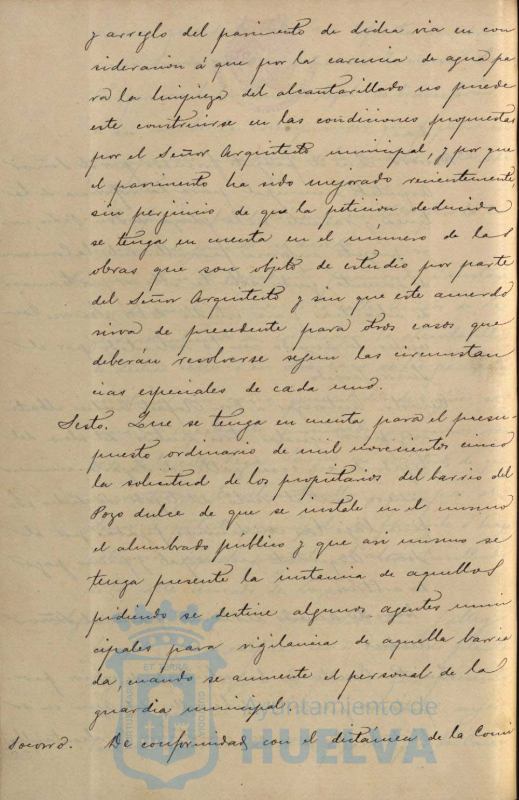 y arreglo del pavimento de dicha via en con
sideracion á que por la carencia de agua pa
ra la limpieza del alcantarillado no puede
este construirse en las condiciones propuestas
por el Señor Arquitecto municipal, y por que
el pavimento ha sido mejorado recientemente,
sin perjuicio de que la peticion deducida
se tenga en cuenta en el número de las
obras que son objeto de estudio por parte
del Señor Arquitecto y sin que este acuerdo
sirva de precedente para otros casos que
deberán resolverse segun las circunstan
cias especiales de cada uno.
Sesto. Que se tenga en cuenta para el presu-
puesto ordinario de mil novecientos cinco
la solicitud de los propietarios del barrio del
Pozo dulce de que se instale en el mismo
el alumbrado público y que asi mismo se
tenga presente la instancia de aquellos
pidiendo se destine algunos agentes muni
cipales para vigilancia de aquella barria
da, cuando se aumente el personal de la
guardia municipal.
Socorro. De conformidad con el dictamen de la Comi
Ayuntamiento de
HUELVA